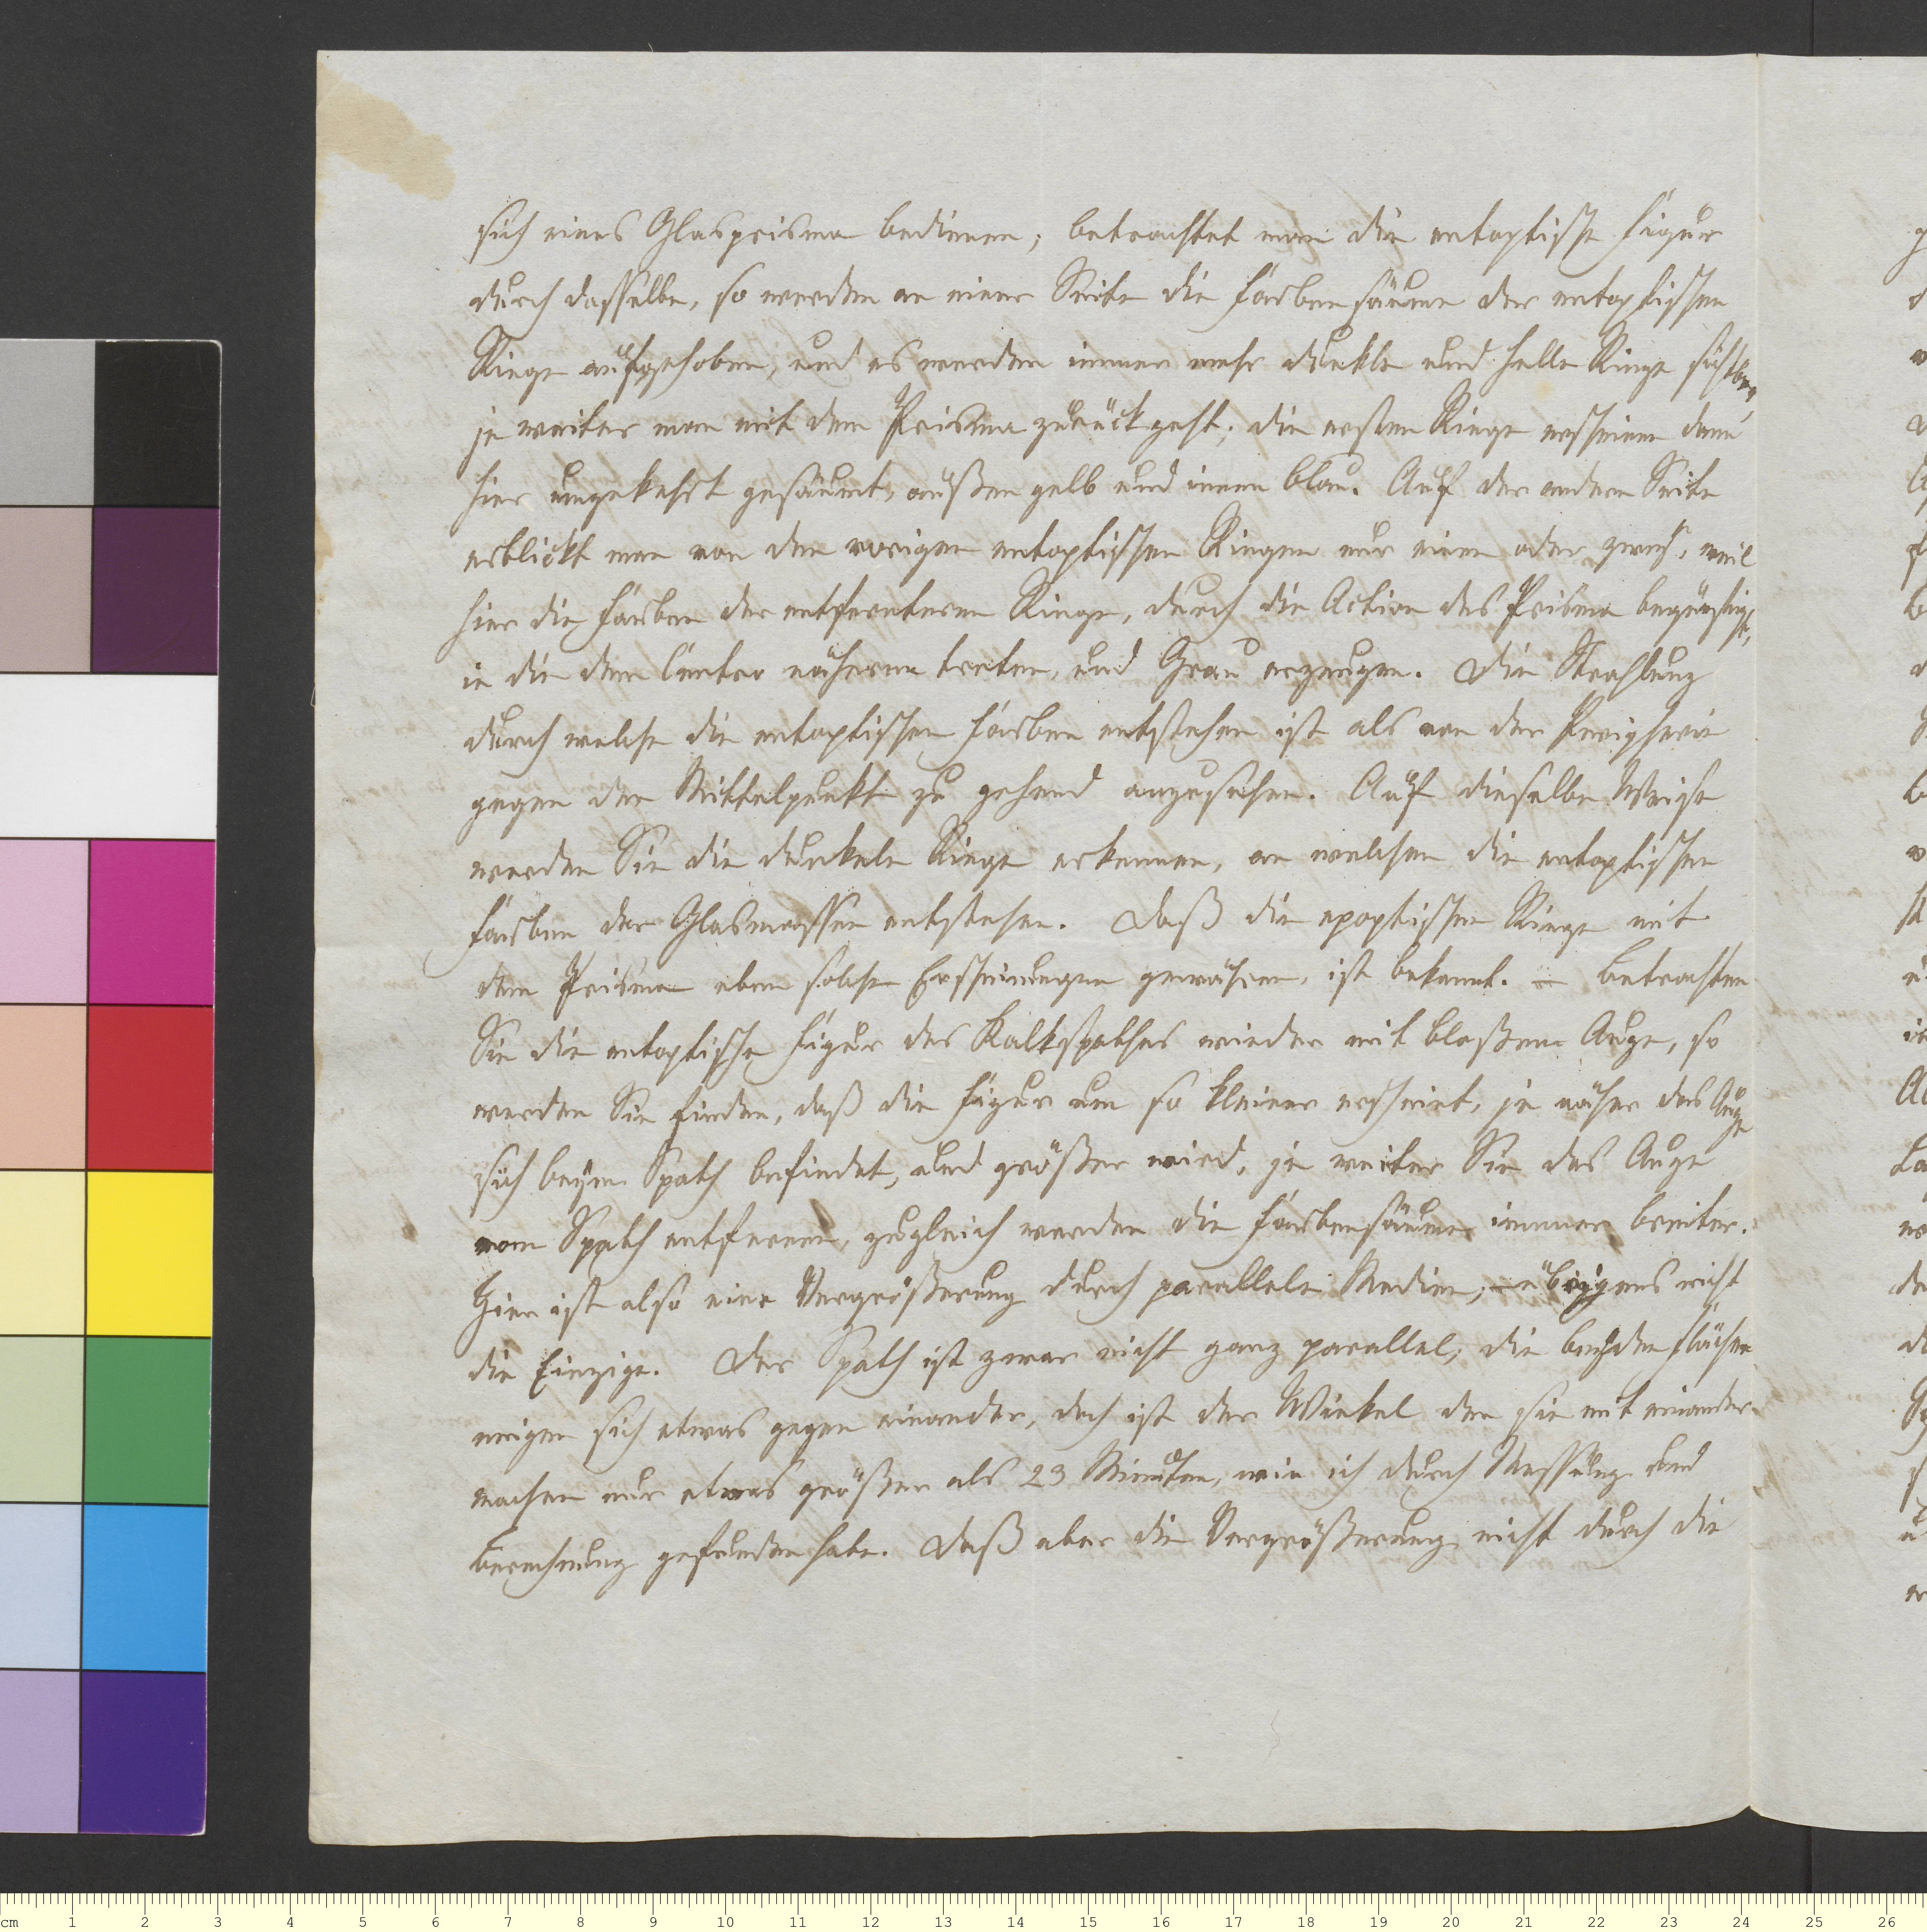 sich eines Glasprisma bedienen; betrachtet man die entoptische Figur
durch dasselbe, so werden an einer Seite die Farbensäume der entoptischen
Ringe aufgehoben, und es werden immer mehr dunkle und helle Ringe sichtbar,
je weiter man mit dem Prisma zurückgeht; die ersten Ringe erscheinen dann
hier umgekehrt gesäumt, außen gelb und innen blau. Auf der andern Seite
erblickt man von den vorigen entoptischen Ringen nur einen oder zwey, weil
hier die Farben der entfernteren Ringe, durch die Action des Prisma begünstigt,
in die dem Centro näheren treten, und Grau erzeugen. Die Strahlung
durch welche die entoptischen Farben entstehen ist als von der Peripherie
gegen den Mittelpunkt zu gehend anzusehen. Auf dieselbe Weise
werden Sie die dunkeln Ringe erkennen, an welchen die entoptischen
Farben der Glasmassen entstehen. Daß die epoptischen Ringe mit
dem Prisma eben solche Erscheinungen gewähren, ist bekannt. – Betrachten
Sie die entoptische Figur des Kalkspathes wieder mit bloßem Auge, so
werden Sie finden, daß die Figur um so kleiner erscheint, je näher das Auge
sich beym Spath befindet, und größer wird, je weiter Sie das Auge
vom Spath entfernen, zugleich werden die Farbensäume immer breiter.
Hier ist also eine Vergrößerung durch parallele Medien; – übrigens nicht
die Einzige. Der Spath ist zwar nicht ganz parallel; die beyden Flächen
neigen sich etwas gegen einander, doch ist der Winkel den sie mit einander
machen nur etwas größer als 23 Minuten, wie ich durch Messung und
Berechnung gefunden habe. Daß aber die Vergrößerung nicht durch die